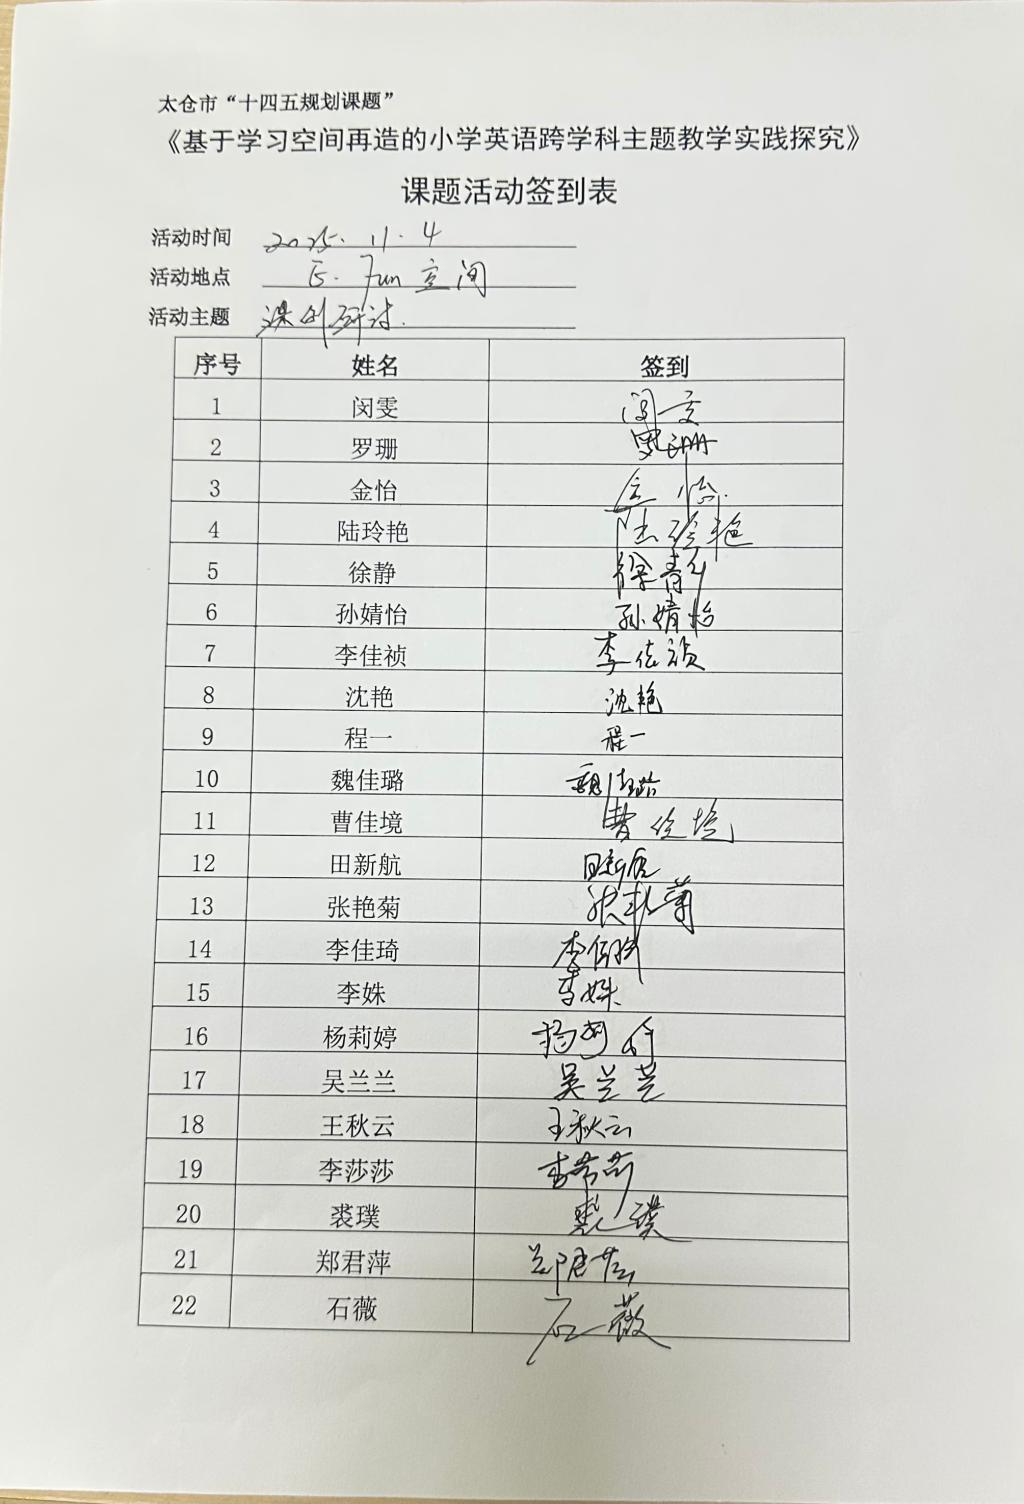 太仓市“十四五规划课题”
《基于学习空间再造的小学英语跨学科主题教学实践探究》
课题活动签到表
活动时间 2025.11.4
活动地点 E·Fun空间
活动主题 课例研讨.
序号 姓名 签到
1 闵雯 闵雯
2 罗珊 罗珊
3 金怡 金怡
4 陆玲艳 陆玲艳
5 徐静 徐静
6 孙婧怡 孙婧怡
7 李佳祯 李佳祯
8 沈艳 沈艳
9 程一 程一
10 魏佳璐 魏佳璐
11 曹佳境 曹佳境
12 田新航 田新航
13 张艳菊 张艳菊
14 李佳琦 李佳琦
15 李姝 李姝
16 杨莉婷 杨莉婷
17 吴兰兰 吴兰兰
18 王秋云 王秋云
19 李莎莎 李莎莎
20 裘璞 裘璞
21 郑君萍 郑君萍
22 石薇 石薇